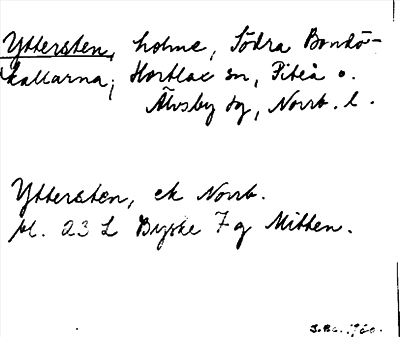 Yttersten, holme, Södra Bondö-
kallarna, Hortlax sn, Piteå o.
Älvsby tg, Norrb. l.
Yttersten, ek Norrb.
bl. 23 L Byske 7 g Mitten.